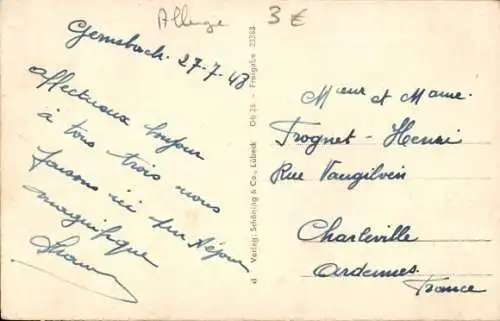 Allemagne 3€
Gernsbach. 27-7-48
Affectueux bonjour
à tous trois nous
faisons ici un séjour
magnifique
Verlag: Schöning & Co., Lübeck Gb 28 - Freigabe 23383
Mœur et Mame.
Trognet-Henri
Rue Vaugilvein
Charleville
Ardennes.
France